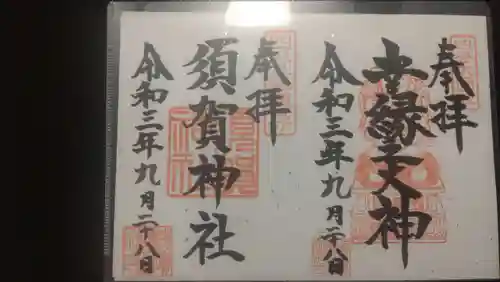 奉拝
幸縁天神
令和三年九月二十八日
奉拝
須賀神社
令和三年九月二十八日